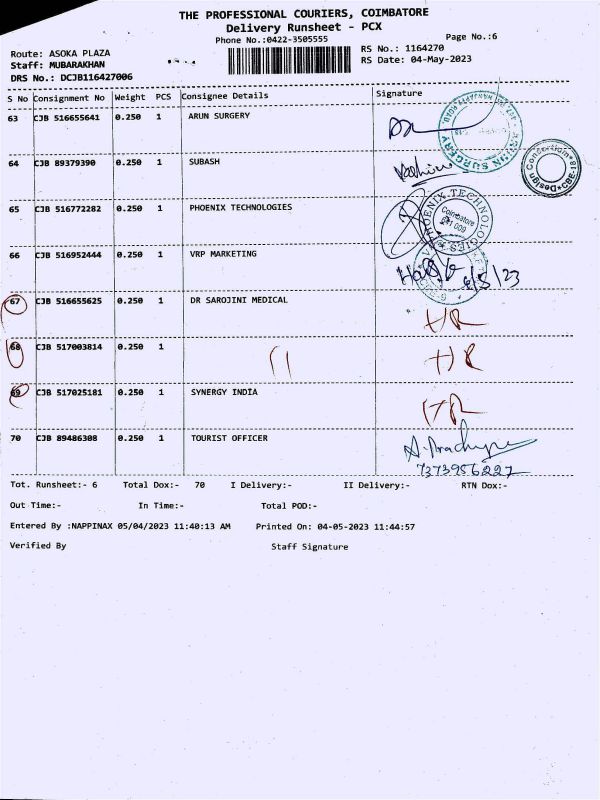 THE PROFESSIONAL COURIERS, COIMBATORE
Delivery Runsheet - PCX
Phone No.:0422-3505555
Page No.:6
Route: ASOKA PLAZA
RS No.: 1164270
Staff: MUBARAKHAN
RS Date: 04-May-2023
DRS No.: DCJB116427006
S No Consignment No Weight PCS Consignee Details Signature
63 CJB 516655641 0.250 1 ARUN SURGERY
ARUN SURGERY
64 CJB 89379390 0.250 1 SUBASH
Design CBE
65 CJB 516772282 0.250 1 PHOENIX TECHNOLOGIES
PHOENIX TECHNOLOGIES
Coimbatore
641 009
66 CJB 516952444 0.250 1 VRP MARKETING
6/5/23
67 CJB 516655625 0.250 1 DR SAROJINI MEDICAL HR
68 CJB 517003814 0.250 1 HR
69 CJB 517025181 0.250 1 SYNERGY INDIA HR
70 CJB 89486308 0.250 1 TOURIST OFFICER
7373956227
Tot. Runsheet:- 6 Total Dox:- 70 I Delivery:- II Delivery:- RTN Dox:-
Out Time:- In Time:- Total POD:-
Entered By :NAPPINAX 05/04/2023 11:40:13 AM Printed On: 04-05-2023 11:44:57
Verified By Staff Signature